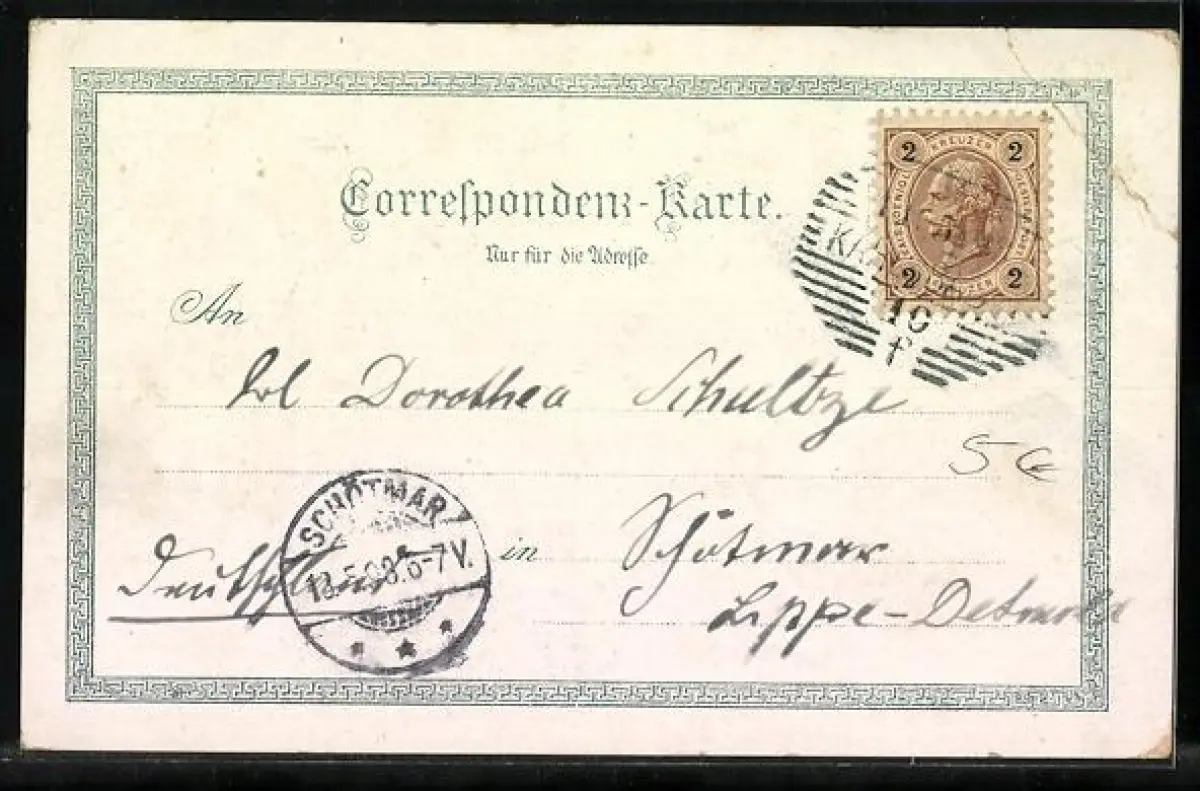 Correspondenz-Karte.
Nur für die Adresse
2 KREUZER 2
2 KREUZER 2
10
An
Frl Dorothea Schultze
5 €
SCHÖTMAR
6-7V.
Deutschland
in Schötmar
Lippe-Detmold